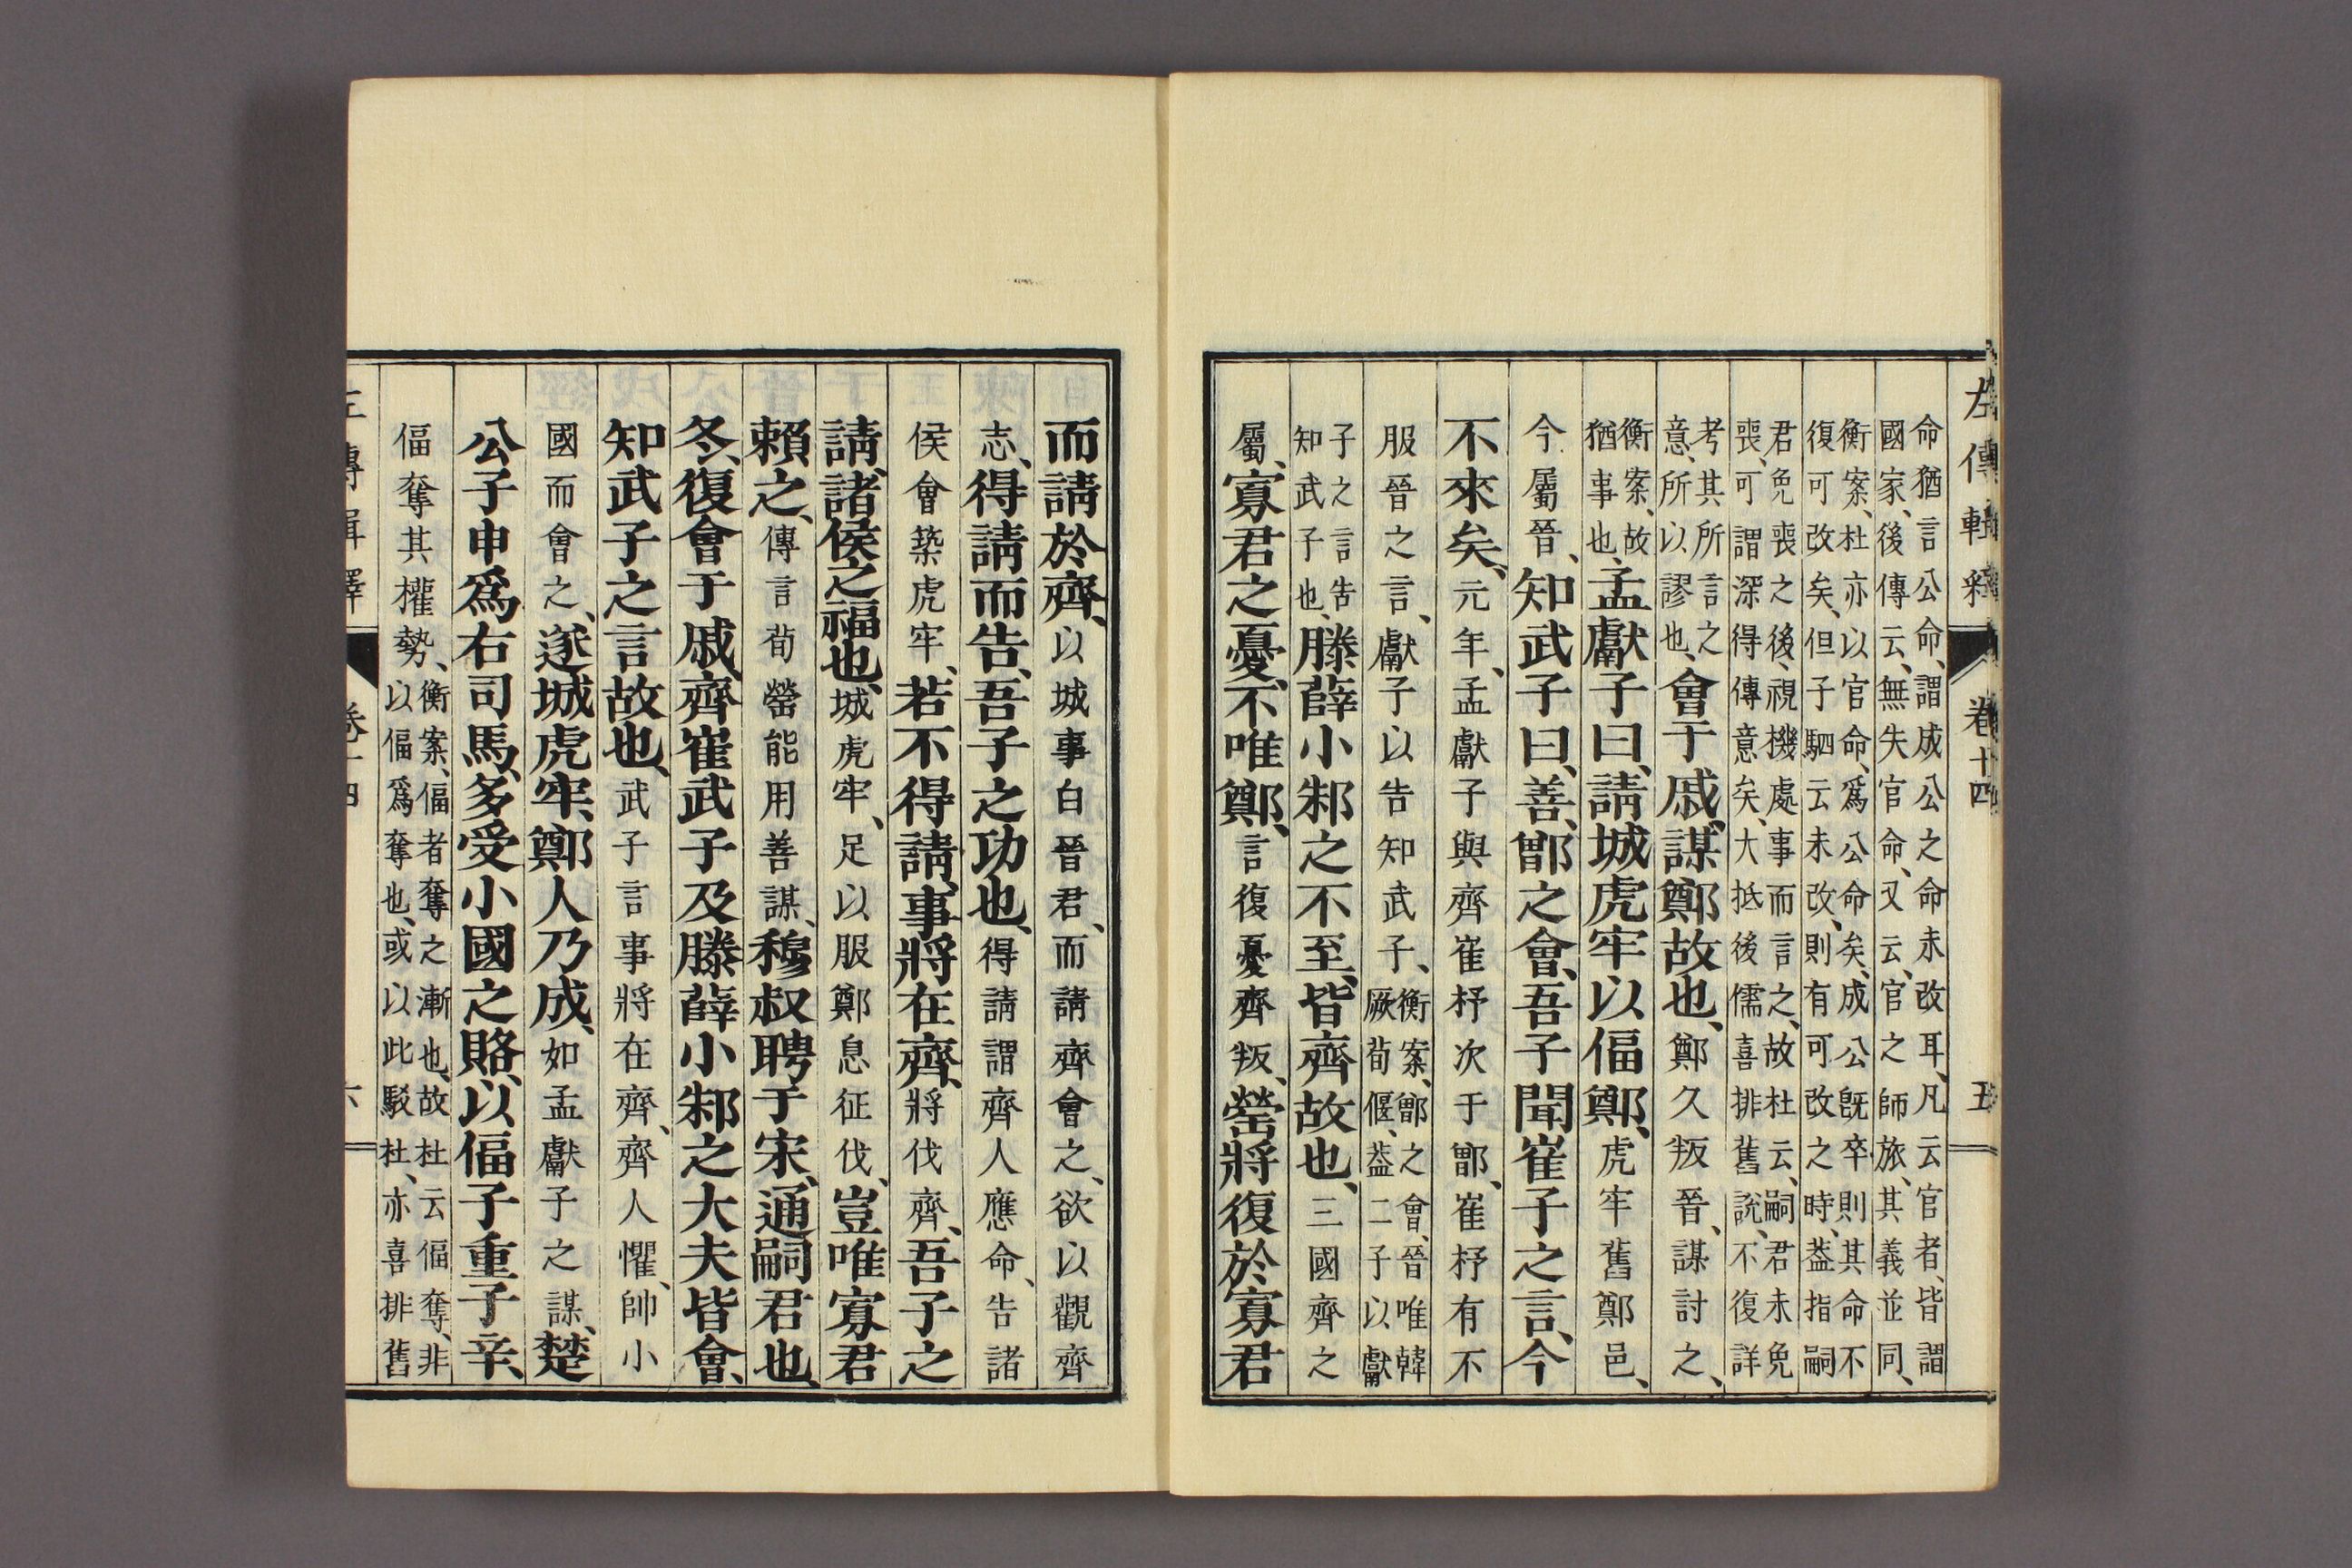 左傳輯釋 卷十四 五
命猶言公命、謂成公之命未改耳、凡云官者、皆謂
國家、後傳云、無失官命、又云、官之師旅、其義並同、
衡案、杜亦以官命、爲公命矣、成公既卒、則其命不
復可改矣、但子駟云未改、則有可改之時、葢指嗣
君免喪之後、視機處事而言之、故杜云、嗣君未免
喪、可謂深得傳意矣、大抵後儒喜排舊說、不復詳
考其所言之
意、所以謬也、會于戚、謀鄭故也、鄭久叛晉、謀討之、
衡案、故
猶事也、孟獻子曰、請城虎牢以偪鄭、虎牢舊鄭邑、
今屬晉、知武子曰、善、鄫之會、吾子聞崔子之言、今
不來矣、元年、孟獻子與齊崔杼次于鄫、崔杼有不
服晉之言、獻子以告知武子、衡案、鄫之會、晉唯韓
厥荀偃、葢二子以獻
子之言告
知武子也、滕薛小邾之不至、皆齊故也、三國齊之
屬、寡君之憂、不唯鄭、言復憂齊叛、罃將復於寡君
而請於齊、以城事白晉君、而請齊會之、欲以觀齊
志、得請而告、吾子之功也、得請謂齊人應命、告諸
侯會築虎牢、若不得請、事將在齊、將伐齊、吾子之
請、諸侯之福也、城虎牢、足以服鄭息征伐、豈唯寡君
賴之、傳言荀罃能用善謀、穆叔聘于宋、通嗣君也、
冬、復會于戚、齊崔武子及滕薛小邾之大夫皆會、
知武子之言故也、武子言事將在齊、齊人懼、帥小
國而會之、遂城虎牢、鄭人乃成、如孟獻子之謀、楚
公子申爲右司馬、多受小國之賂、以偪子重子辛、
偪奪其權勢、衡案、偪者奪之漸也、故杜云偪奪、非
以偪爲奪也、或以此駁杜、亦喜排舊